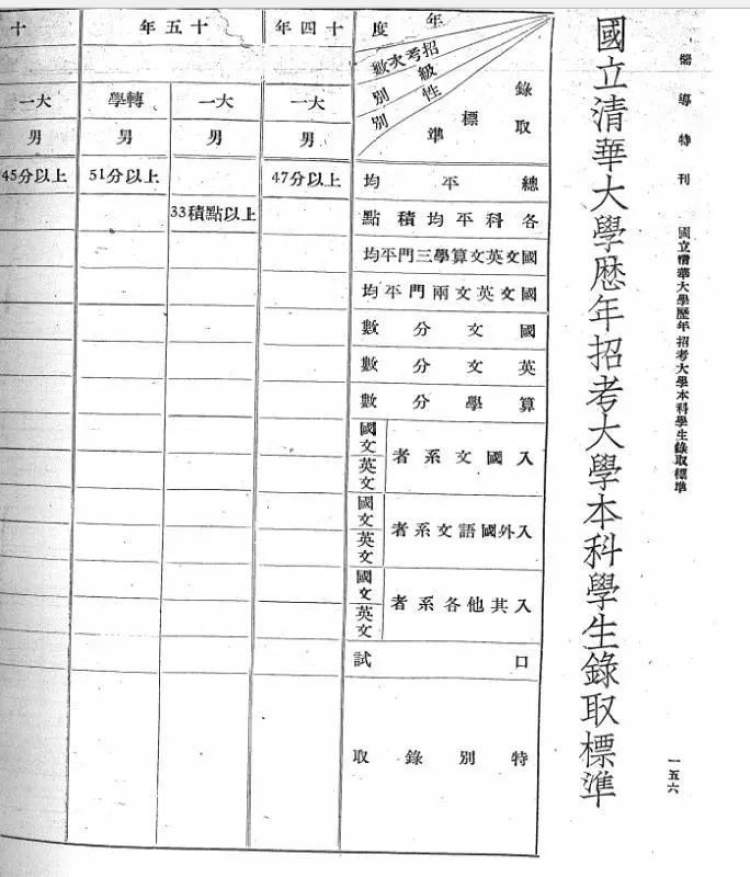 導特刊　國立清華大學歷年招考大學本科學生錄取標準
一五六
國立清華大學歴年招考大學本科學生錄取標準
年度
招考次數
級別
性別
錄取標準
總平均
各科平均積點
國文英文算學三門平均
國文英文兩門平均
國文分數
英文分數
算學分數
入國文系者
國文
英文
入外國語文系者
國文
英文
入其他各系者
國文
英文
口試
特別錄取
十四年
大一
男
47分以上
十五年
大一
男
33積點以上
轉學
男
51分以上
十
大一
男
45分以上